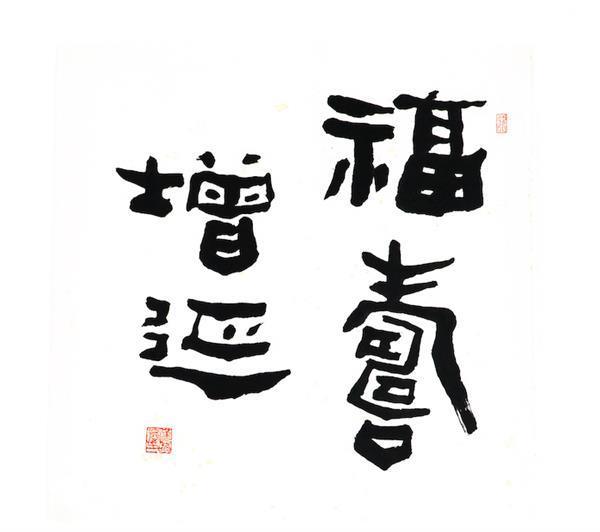 福壽
增延